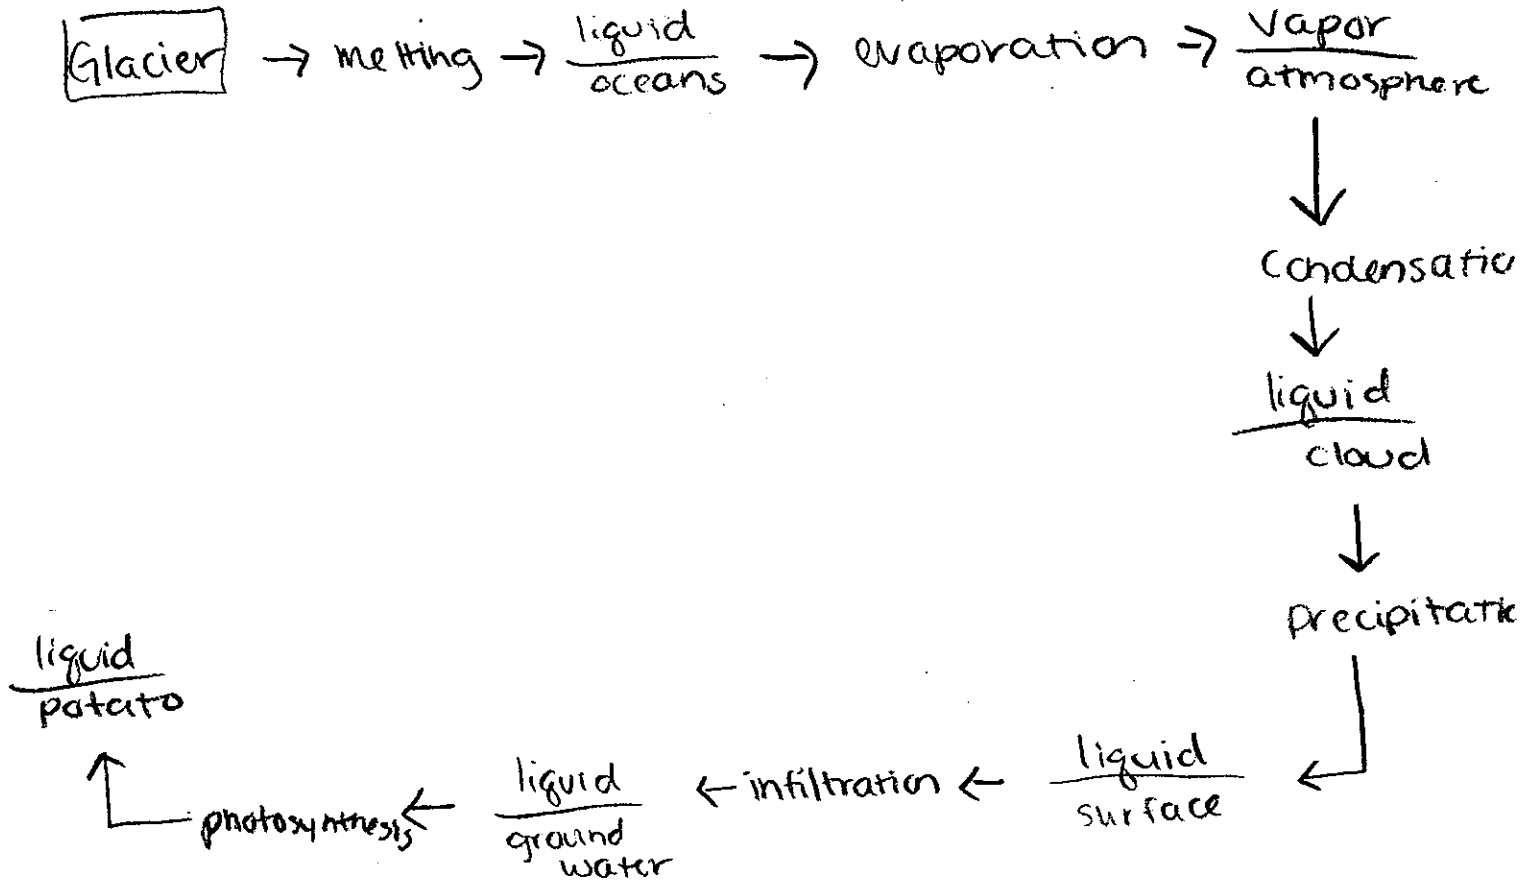 Glacier → melting → liquid → evaporation → vapor
oceans
atmosphere
↓
Condensatio
↓
liquid
cloud
↓
precipitatio
liquid
surface
← infiltration ←
liquid
ground
water
photosynthesis ←
liquid
potato